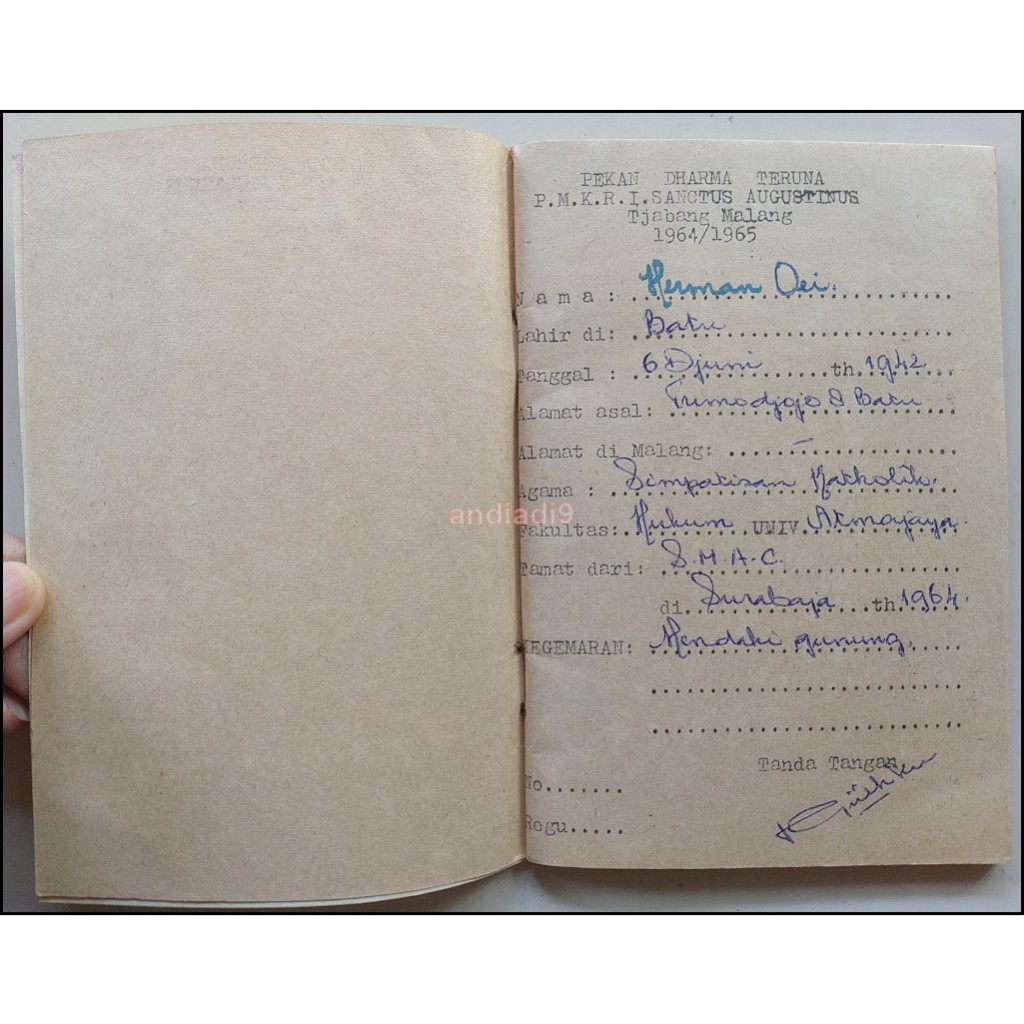 PEKAN DHARMA TERUNA
P.M.K.R.I.SANCTUS AUGUSTINUS
Tjabang Malang
1964/1965
Nama: Herman Oei.
Lahir di: Batu
Tanggal: 6 Djuni th.1942
Alamat asal: Trunodjojo 8 Batu
Alamat di Malang: –
Agama: Simpatisan Katholik.
andiadi9
Fakultas: Hukum UNIV. Atmajaya.
Tamat dari: S.M.A.C.
di. Surabaja th.1964.
KEGEMARAN: Mendaki gunung.
Tanda Tangan
No.......
Regu.....